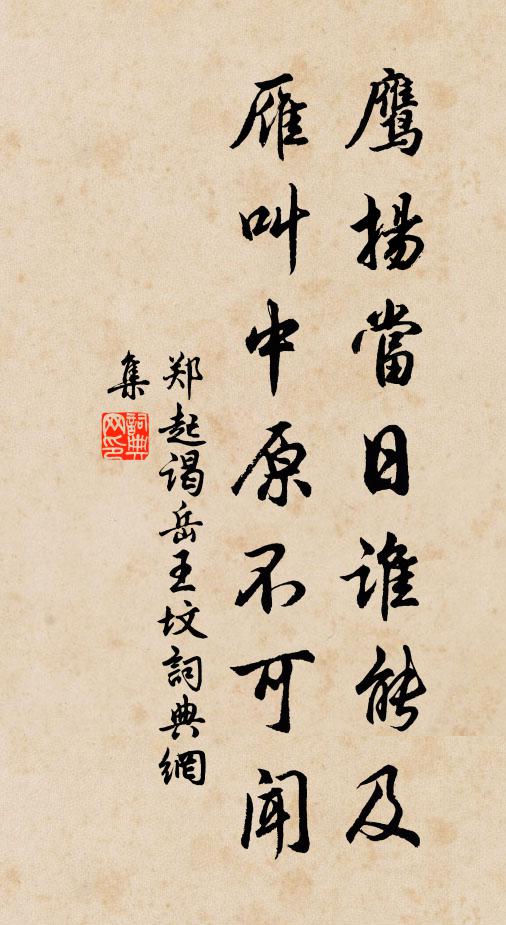 鹰揚當日谁能及
雁叫中原不可闻
郑起谒岳王坟詞典網
集
詞典网印